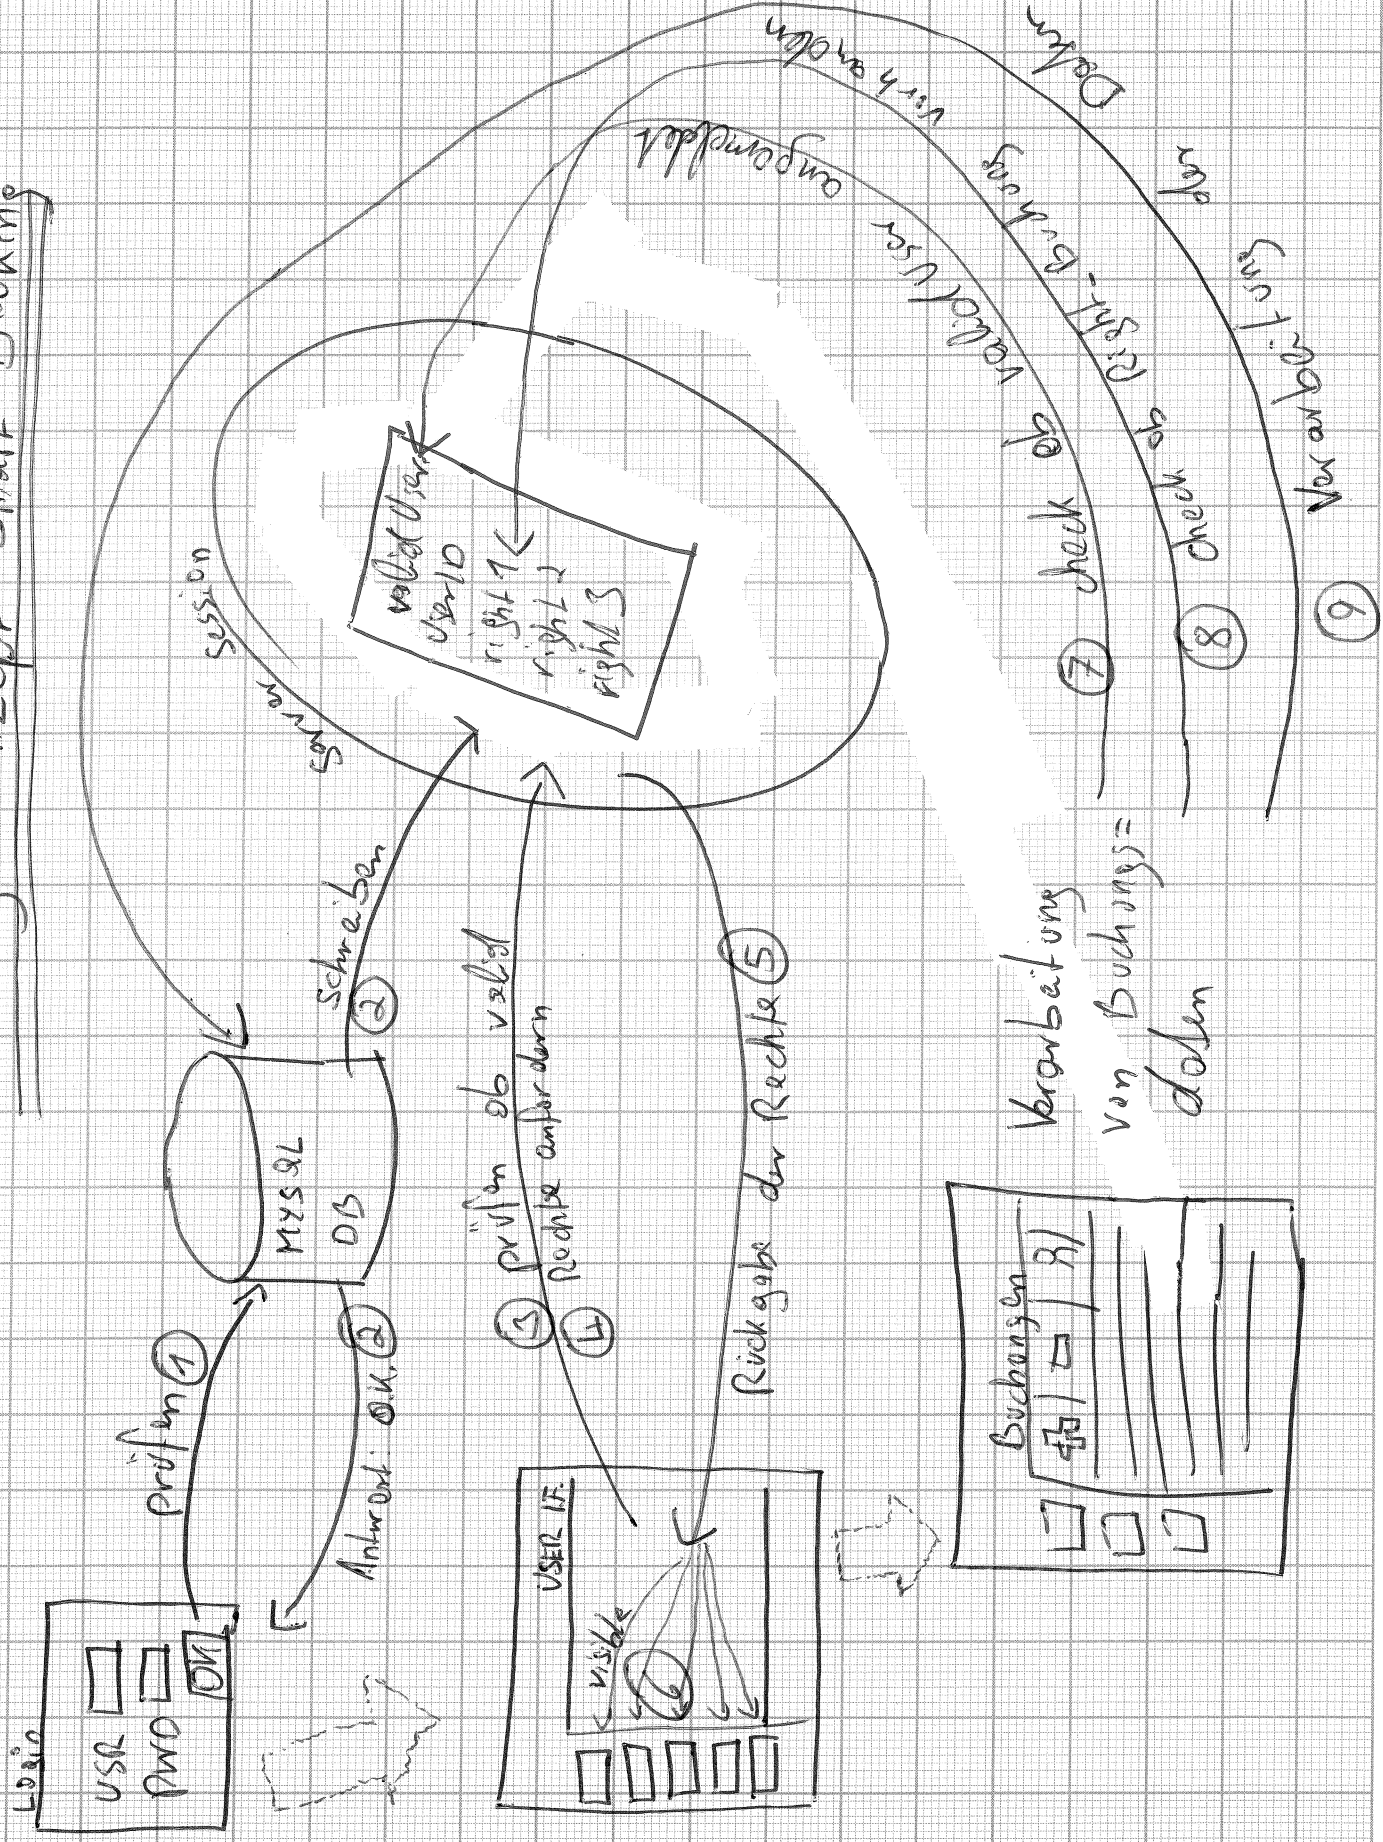 Login
USR
PWD
OK
prüfen 1
Antwort: O.K. 2
MYSQL
DB
2 Schreiben
Server
Session
valid User
UserID
right 1
right 2
right 3
3 prüfen ob valid
4 Rechte anfordern
Rückgabe der Rechte 5
USER I.F.
visible
6
Buchungen
Verarbeitung
von Buchungs=
daten
7 check ob valid User angemeldet
8 check ob Right-Buchung vorhanden
9 Verarbeitung der Daten